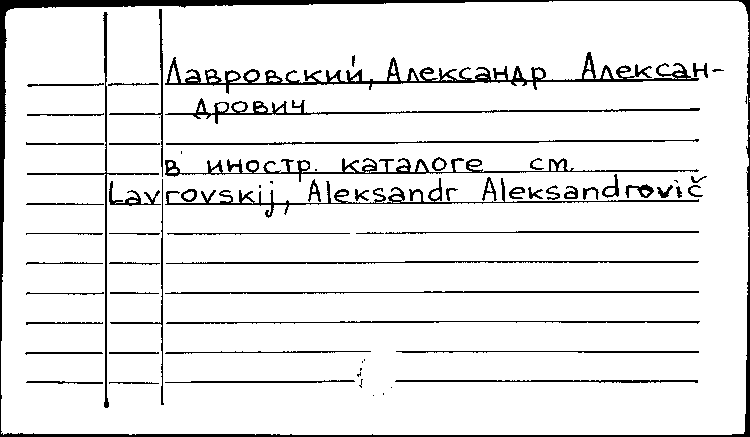 Лавровский, Александр Алексан-
дрович
в иностр. каталоге см.
Lavrovskij, Aleksandr Aleksandrovič